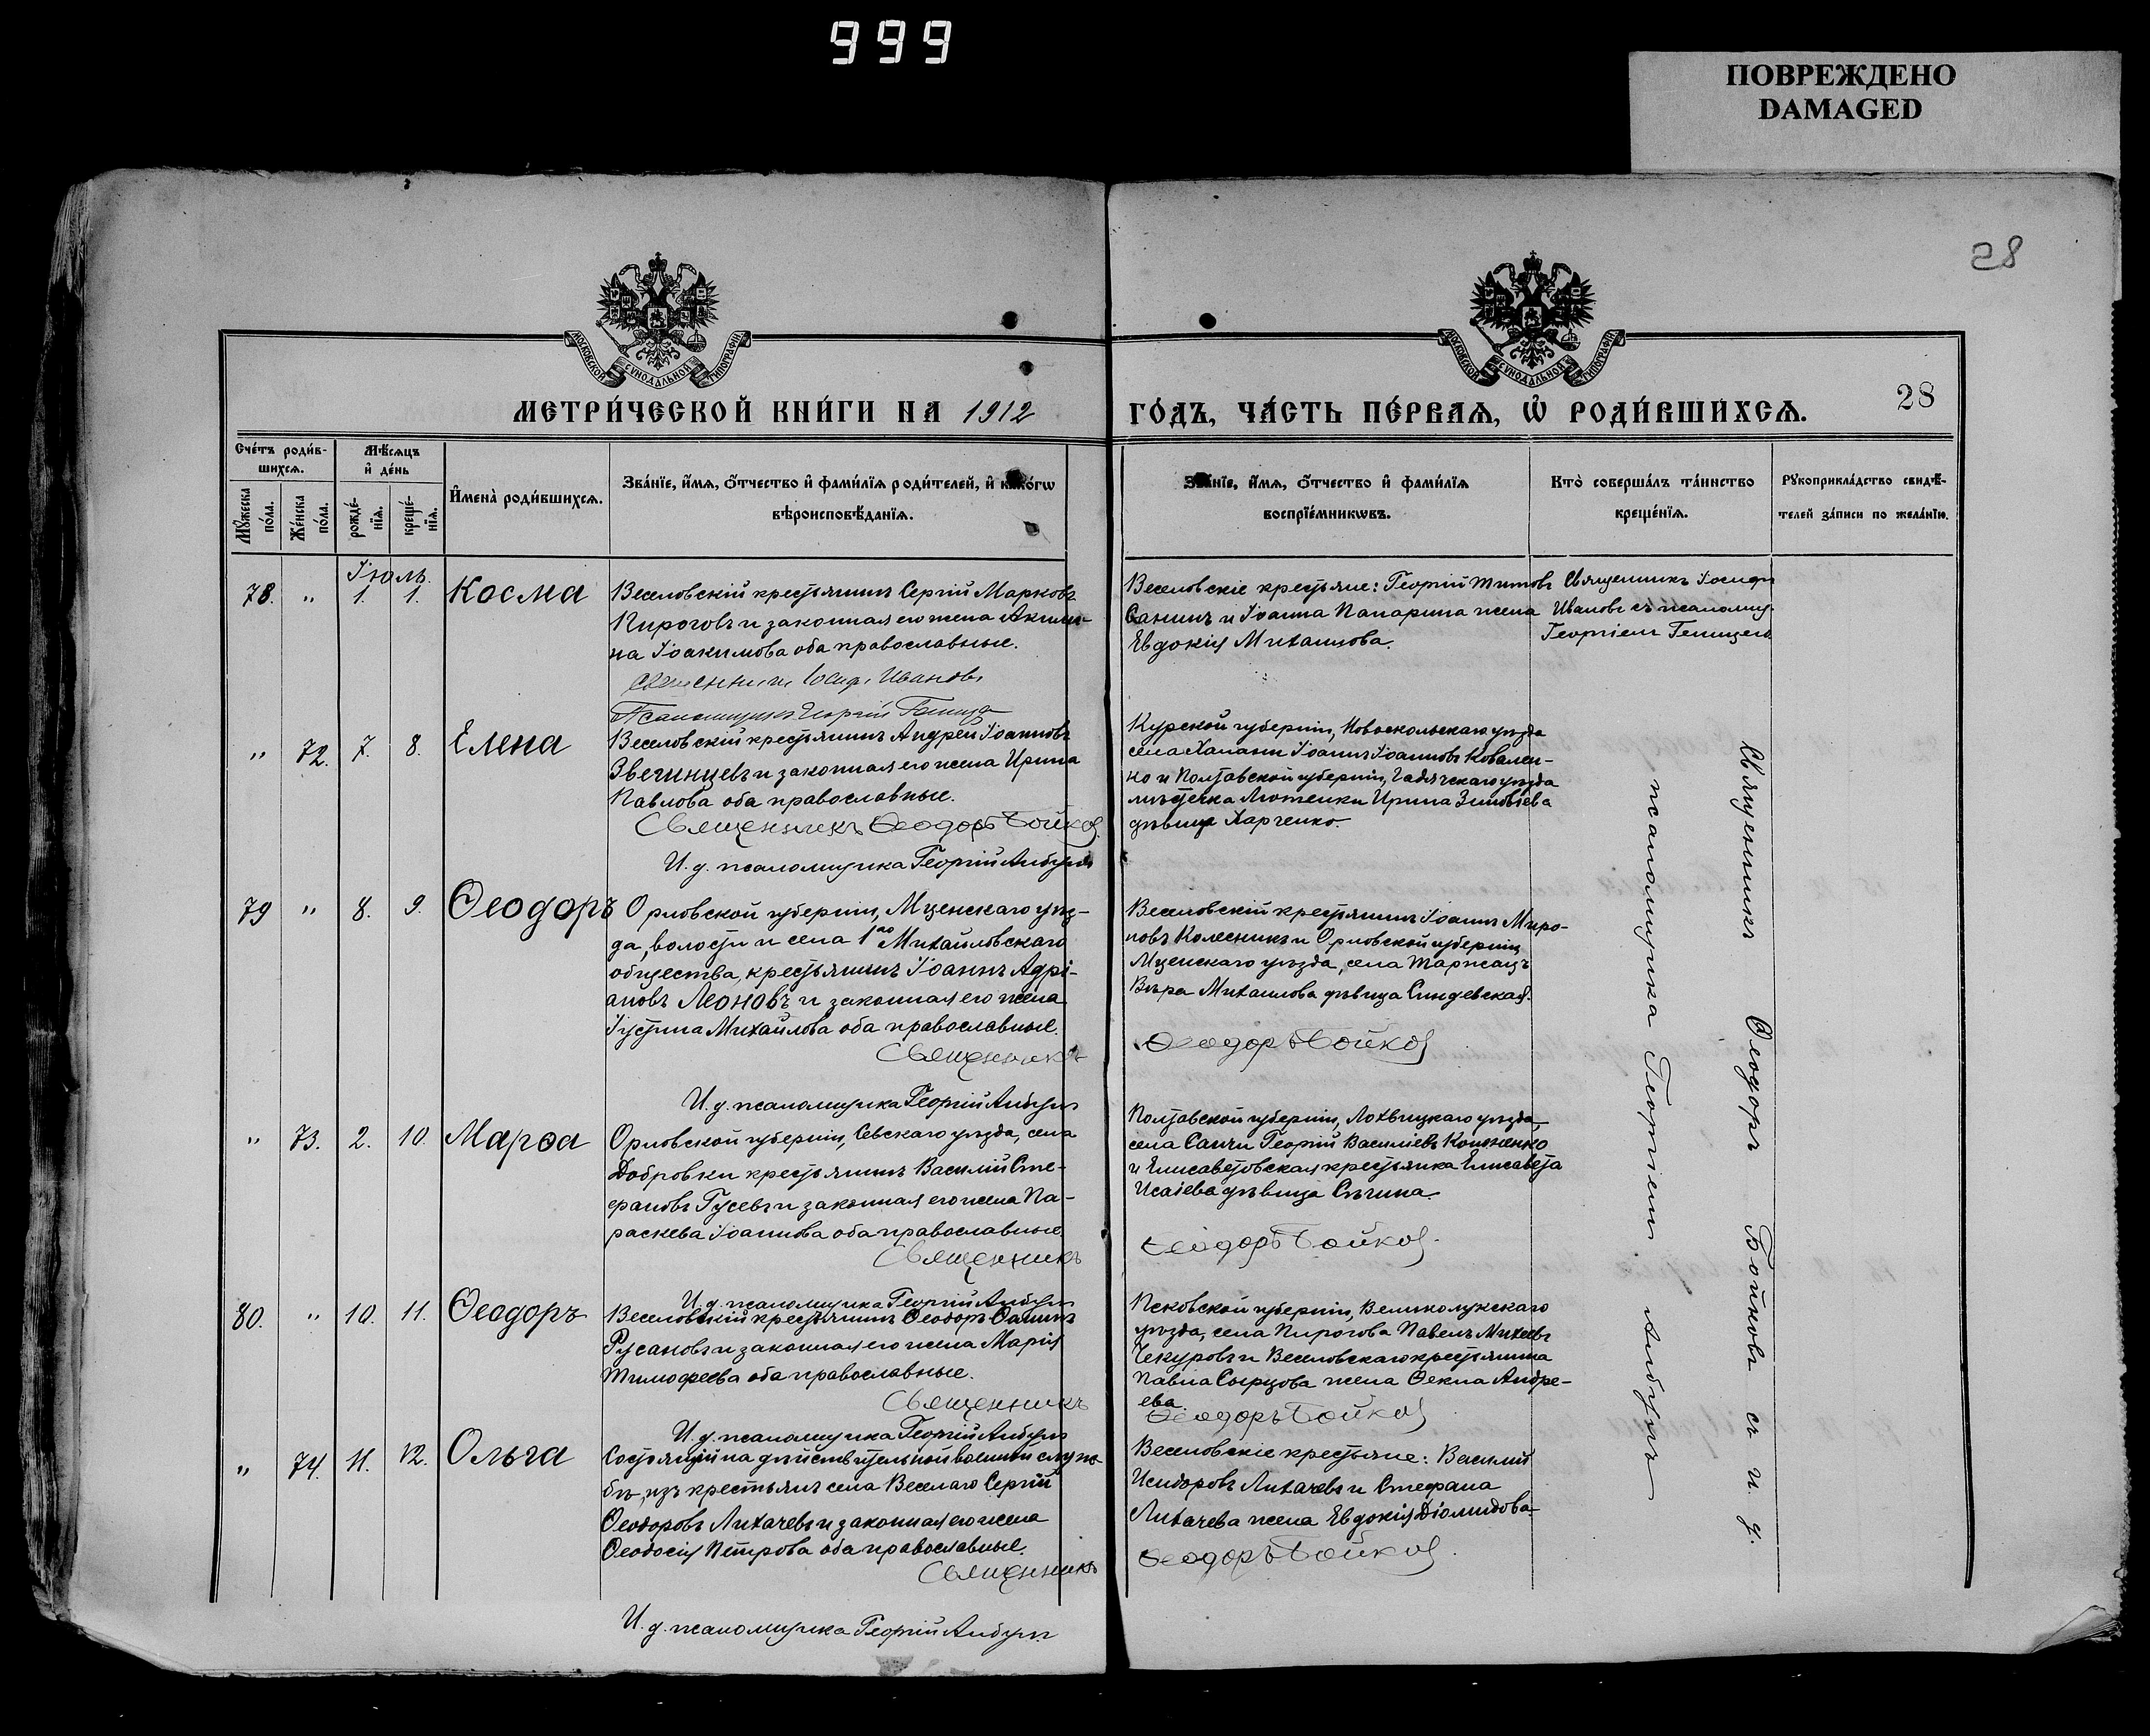 999
ПОВРЕЖДЕНО
DAMAGED
28
МОСКОВСКОЙ СѴНОДАЛЬНОЙ ТИПОГРАФІИ
МОСКОВСКОЙ СѴНОДАЛЬНОЙ ТИПОГРАФІИ
МЕТРИ́ЧЕСКОЙ КНИ́ГИ НА 1912
ГО́ДЪ, ЧА́СТЬ ПЕ́РВАЯ, Ѡ҆ РОДИ́ВШИХСЯ.
28
Сче́тъ роди́в-
шихся.
Мѣ́сяцъ
и҆ де́нь
Мꙋ́жеска по́ла.
Же́нска по́ла.
рожде́-
нїя.
креще́-
нїя.
И҆мена̀ роди́вшихся.
Зва́нїе, и҆́мя, ѻ҆́тчество и҆ фами́лїя роди́телей, и҆ како́гѡ
вѣроисповѣ́данїя.
Зва́нїе, и҆́мя, ѻ҆́тчество и҆ фами́лїя
воспрїе́мникѡвъ.
Кто̀ соверша́лъ та́инство
креще́нїя.
Рꙋкоприкла́дство свидѣ́-
телей за́писи по жела́нїю.
Іюль.
78. " 1. 1. Косма
Веселовскій крестьянинъ Сергій Марковъ
Пироговъ и законная его жена Акили-
на Іоакимова оба православные.
Священникъ Іосифъ Ивановъ
Псаломщикъ Георгій
Веселовскіе крестьяне: Георгій Титовъ
Санинъ и Іоанна Папарина жена
Евдокія Михаилова.
Священникъ Іосифъ
Ивановъ съ псаломщ.
Георгіем
" 72. 7. 8. Елена
Веселовскій крестьянинъ Андрей Іоанновъ
Звегинцевъ и законная его жена Ирина
Павлова оба православные.
Священникъ Ѳеодоръ Бойковъ
И. д. псаломщика Георгій Анбулъ
Курской губерніи, Новооскольскаго уѣзда
села Халани Іоаннъ Іоанновъ Ковален-
ко и Полтавской губерніи, Гадячскаго уѣзда
мѣстечка Лютенки Ирина Зиновіева
дѣвица Харченко.
79 " 8. 9. Ѳеодоръ
Орловской губерніи, Мценскаго уѣз-
да, волости и села 1го Михайловскаго
общества, крестьянинъ Іоаннъ Адрі-
ановъ Леоновъ и законная его жена
Іустина Михайлова оба православные.
Священникъ
И. д. псаломщика Георгій Анбулъ
Веселовскій крестьянинъ Іоаннъ Миро-
новъ Колесникъ и Орловской губерніи,
Мценскаго уѣзда, села
Вѣра Михаилова дѣвица Синдевская.
Ѳеодоръ Бойковъ
" 73. 2. 10. Марѳа
Орловской губерніи, Севскаго уѣзда, села
Добровки крестьянинъ Василій Сте-
фановъ Гусевъ и законная его жена Па-
раскева Іоаннова оба православные.
Священникъ
И. д. псаломщика Георгій Анбулъ
Полтавской губерніи, Лохвицкаго уѣзда,
села Санчи Георгій Василіевъ Кононенко
и Елисаветовская крестьянка Елисавета
Исаіева дѣвица
Ѳеодоръ Бойковъ
80. " 10. 11. Ѳеодоръ
Веселовскій крестьянинъ Ѳеодоръ Ѳаминъ
Русановъ и законная его жена Марія
Тимоѳеева оба православные.
Священникъ
И. д. псаломщика Георгій Анбулъ
Псковской губерніи, Великолукскаго
уѣзда, села Пирогова Павелъ Михеевъ
Чекуровъ и Веселовскаго крестьянина
Павла Сырцова жена Ѳекла Андре-
ева.
Ѳеодоръ Бойковъ
" 74. 11. 12. Ольга
Состоящій на дѣйствительной военной служ-
бѣ, изъ крестьянъ села Веселаго Сергій
Ѳеодоровъ Лихачевъ и законная его жена
Ѳеодосія Петрова оба православные.
Священникъ
И. д. псаломщика Георгій Анбулъ
Веселовскіе крестьяне: Василій
Исидоровъ Лихачевъ и Стефана
Лихачева жена Евдокія Діомидова.
Ѳеодоръ Бойковъ
Священникъ Ѳеодоръ Бойковъ съ и. д.
псаломщика Георгіемъ Анбулъ